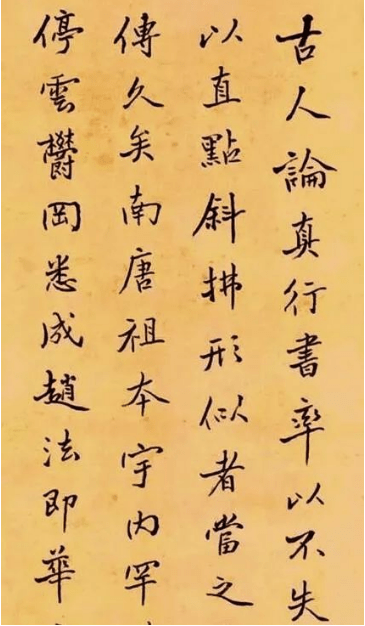 古人論真行書率以不失
以直點斜拂形似者當之
傳久矣南唐祖本宇内罕
停雲欝岡悉成趙法即華